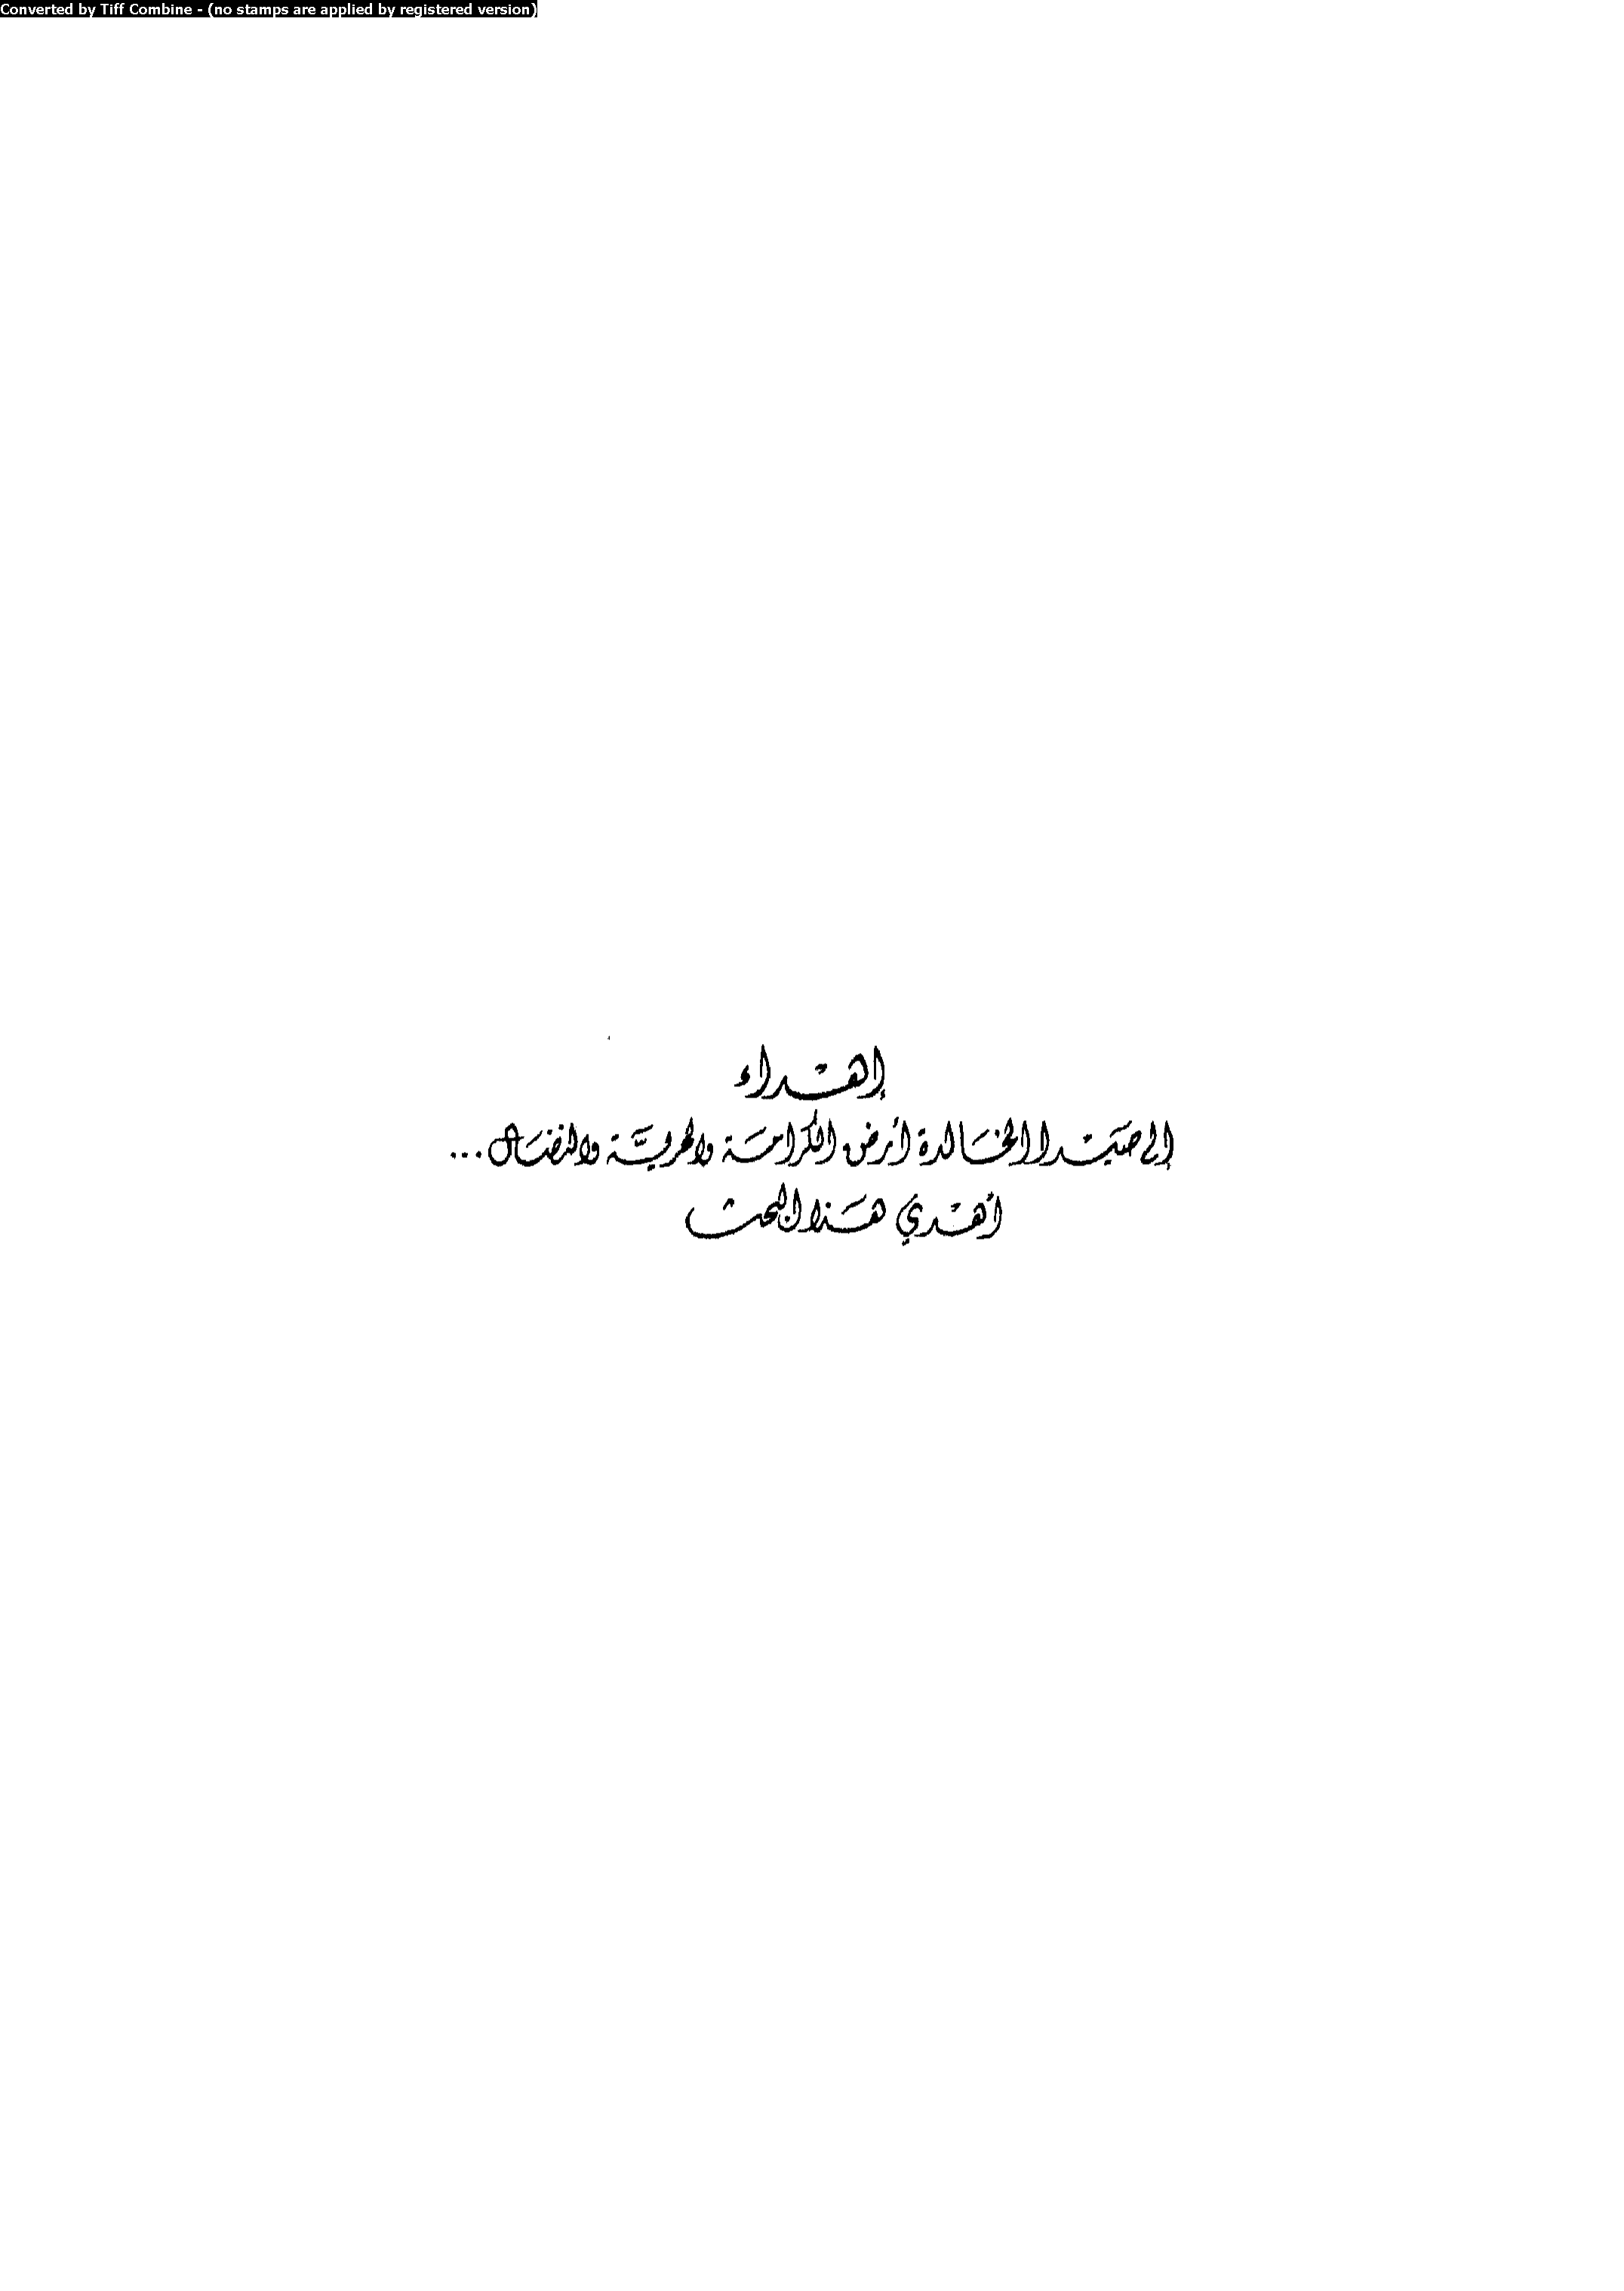 Converted by Tiff Combine - (no stamps are applied by registered version)
إهداء
إلى صيدا الخالدة أرض الكرامة والحرية والنضال ...
أهدي هذا البحث